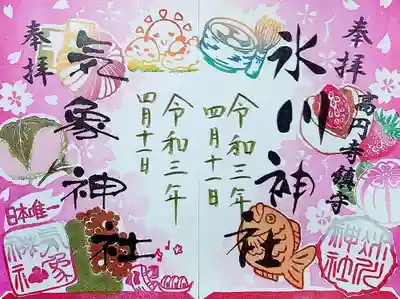 奉拝
高円寺鎮守
氷川神社
令和三年
四月十一日
奉拝
気象神社
令和三年
四月十一日
日本唯一
気象神社